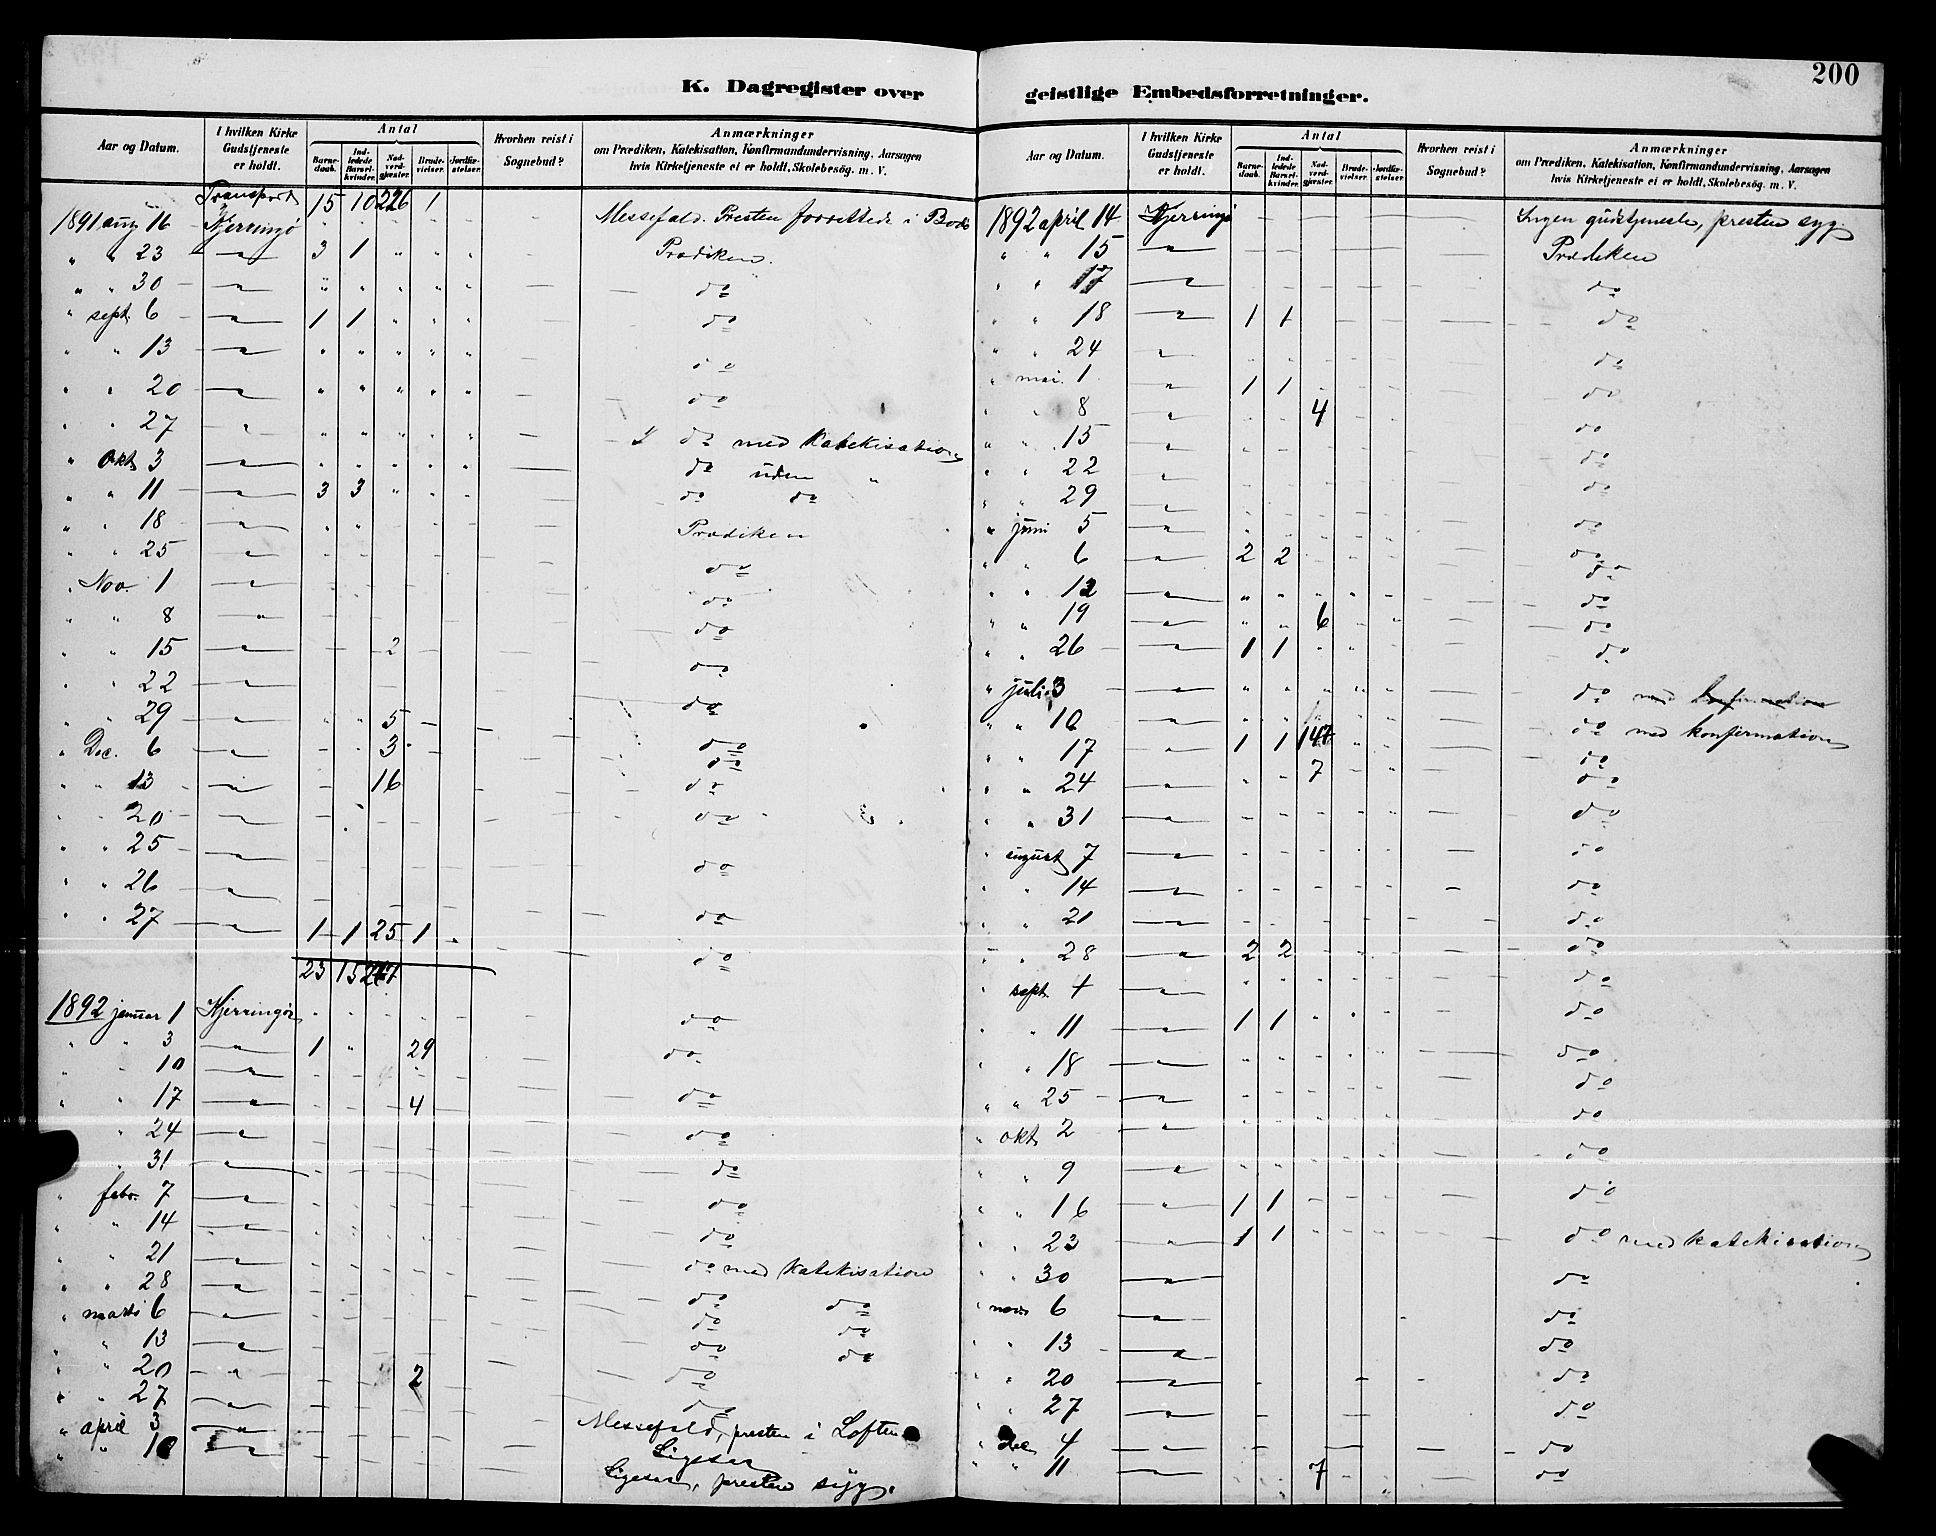 200
K. Dagregister over geistlige Embedsforretninger.
Aar og Datum. I hvilken Kirke Gudstjeneste er holdt. Antal Barnedaab. Indledede Barselkvinder. Nadverdgjæster. Brudevielser. Jordfæstelser. Hvorhen reist i Sognebud? Anmærkninger om Prædiken, Katekisation, Konfirmandundervisning, Aarsagen hvis Kirketjeneste ei er holdt, Skolebesøg. m. V.
Transport 15 10 226 1
1891 aug 16 Kjerringø Messefald. Presten forrettede i Bodø
" " 23 —"— 3 1 " " " Prædiken.
" " 30 —"— " " " " " do
" sept 6 —"— 1 1 " " " do
" " 13 —"— " " " " " do
" " 20 —"— " " " " " do
" " 27 " " " " " " do med katekisation
" Okt 3 —"— " " " " " do uden "
" " 11 —"— 3 3 " " " do do
" " 18 —"— Prædiken
" " 25 —"— do
" Nov. 1 —"— do
" " 8 —"— do
" " 15 —"— 2 do
" " 22 —"— do
" " 29 —"— 5 do
" Dec. 6 —"— 3 do
" " 13 —"— 16 do
" " 20 —"— do
" " 25 —"— do
" " 26 —"— do
" " 27 —"— 1 1 25 1 do
23 15
1892 januar 1 Kjerringø do
" " 3 —"— 1 " 29 do
" " 10 —"—
" " 17 —"— 4 do
" 24 —"— do
" 31 —"— do
" febr. 7 —"— do
" " 14 —"— do
" " 21 —"— do med katekisation
" " 28 —"— do do
" marts 6 —"— do do
" " 13 —"— do do
" " 20 —"— 2 do
" " 27 —"— do
" april 3 —"— Messefald, presten i Loften
" " 10 —"— Ligesaa
Ligesaa, presten syg.
Aar og Datum. I hvilken Kirke Gudstjeneste er holdt. Antal Barnedaab. Indledede Barselkvinder. Nadverdgjæster. Brudevielser. Jordfæstelser. Hvorhen reist i Sognebud? Anmærkninger om Prædiken, Katekisation, Konfirmandundervisning, Aarsagen hvis Kirketjeneste ei er holdt, Skolebesøg. m. V.
1892 april 14 Kjerringø Ingen gudstjeneste, presten syg
" " 15 —"— Prædiken
" " 17 —"— do
" " 18 —"— 1 1 do
" " 24 " do
" mai. 1 —"— 1 1 do
" " 8 —"— 4 do
" " 15 —"— do
" " 22 —"— do
" " 29 —"— do
" juni 5 —"— do
" " 6 —"— 2 2 do
" " 12 —"— do
" " 19 —"— 6 do
" " 26 —"— 1 1 do
" juli 3 —"— do med konfirmation
" " 10 —"— do med konfirmation
" " 17 —"— 1 1 147 do
" " 24 —"— 7 do
" " 31 —"— do
" august 7 —"— do
" " 14 —"— do
" " 21 —"— do
" 28 —"— 2 2 do
sept. 4 —"— do
" " 11 —"— 1 1 do
" " 18 —"— do
" " 25 —"— do
" okt 2 —"— do
" " 9 —"— do
" " 16 —"— 1 1 do
" " 23 —"— 1 1 do med katekisation
" " 30 —"— do
" nov. 6 —"— do
" " 13 —"— do
" " 20 —"— do
" " 27 —"— do
" dec 4 —"— do
" " 11 —"— 7 do